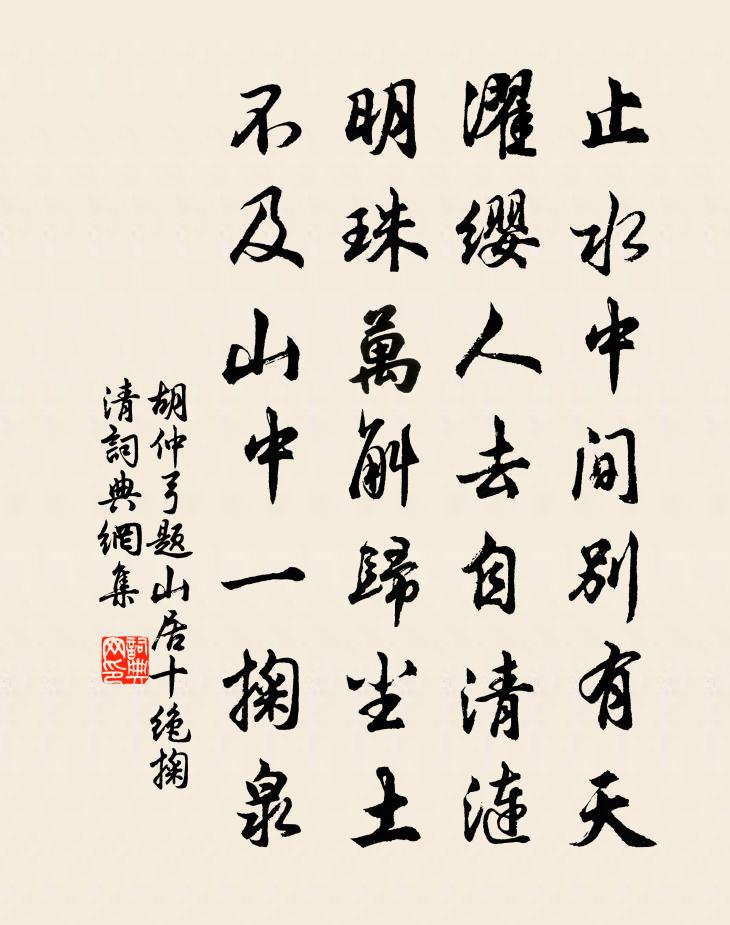 止水中间别有天
濯缨人去自清漣
明珠萬斛歸尘土
不及山中一掬泉
胡仲弓题山居十绝掬
清詞典網集
詞典
网印